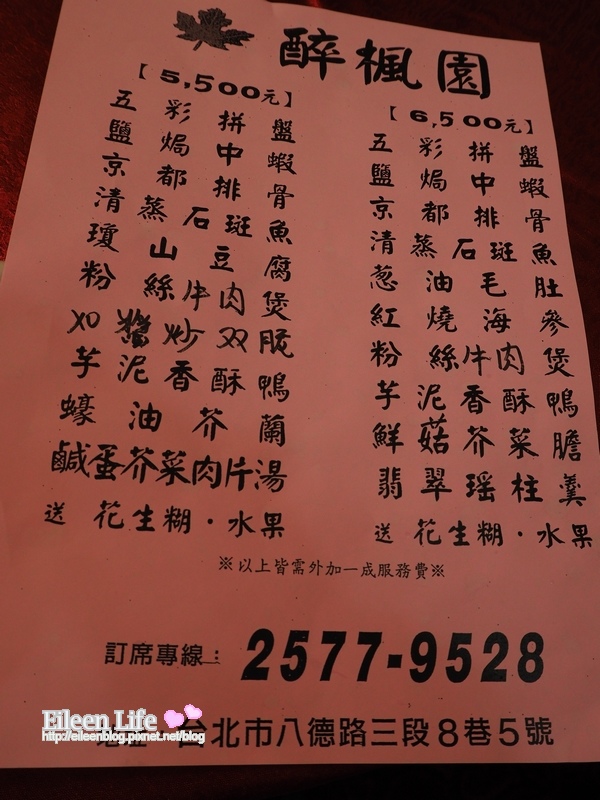 醉楓園
【5,500元】
五彩拼盤
鹽焗中蝦
京都排骨
清蒸石斑魚
瓊山豆腐
粉絲牛肉煲
XO醬炒双脆
芋泥香酥鴨
蠔油芥蘭
鹹蛋芥菜肉片湯
送 花生糊·水果
【6,500元】
五彩拼盤
鹽焗中蝦
京都排骨
清蒸石斑魚
葱油毛肚
紅燒海參
粉絲牛肉煲
芋泥香酥鴨
鮮菇芥菜膽
翡翠瑤柱羹
送 花生糊·水果
※以上皆需外加一成服務費※
訂席專線：2577-9528
台北市八德路三段8巷5號
Eileen Life
http://eileenblog.pixnet.net/blog